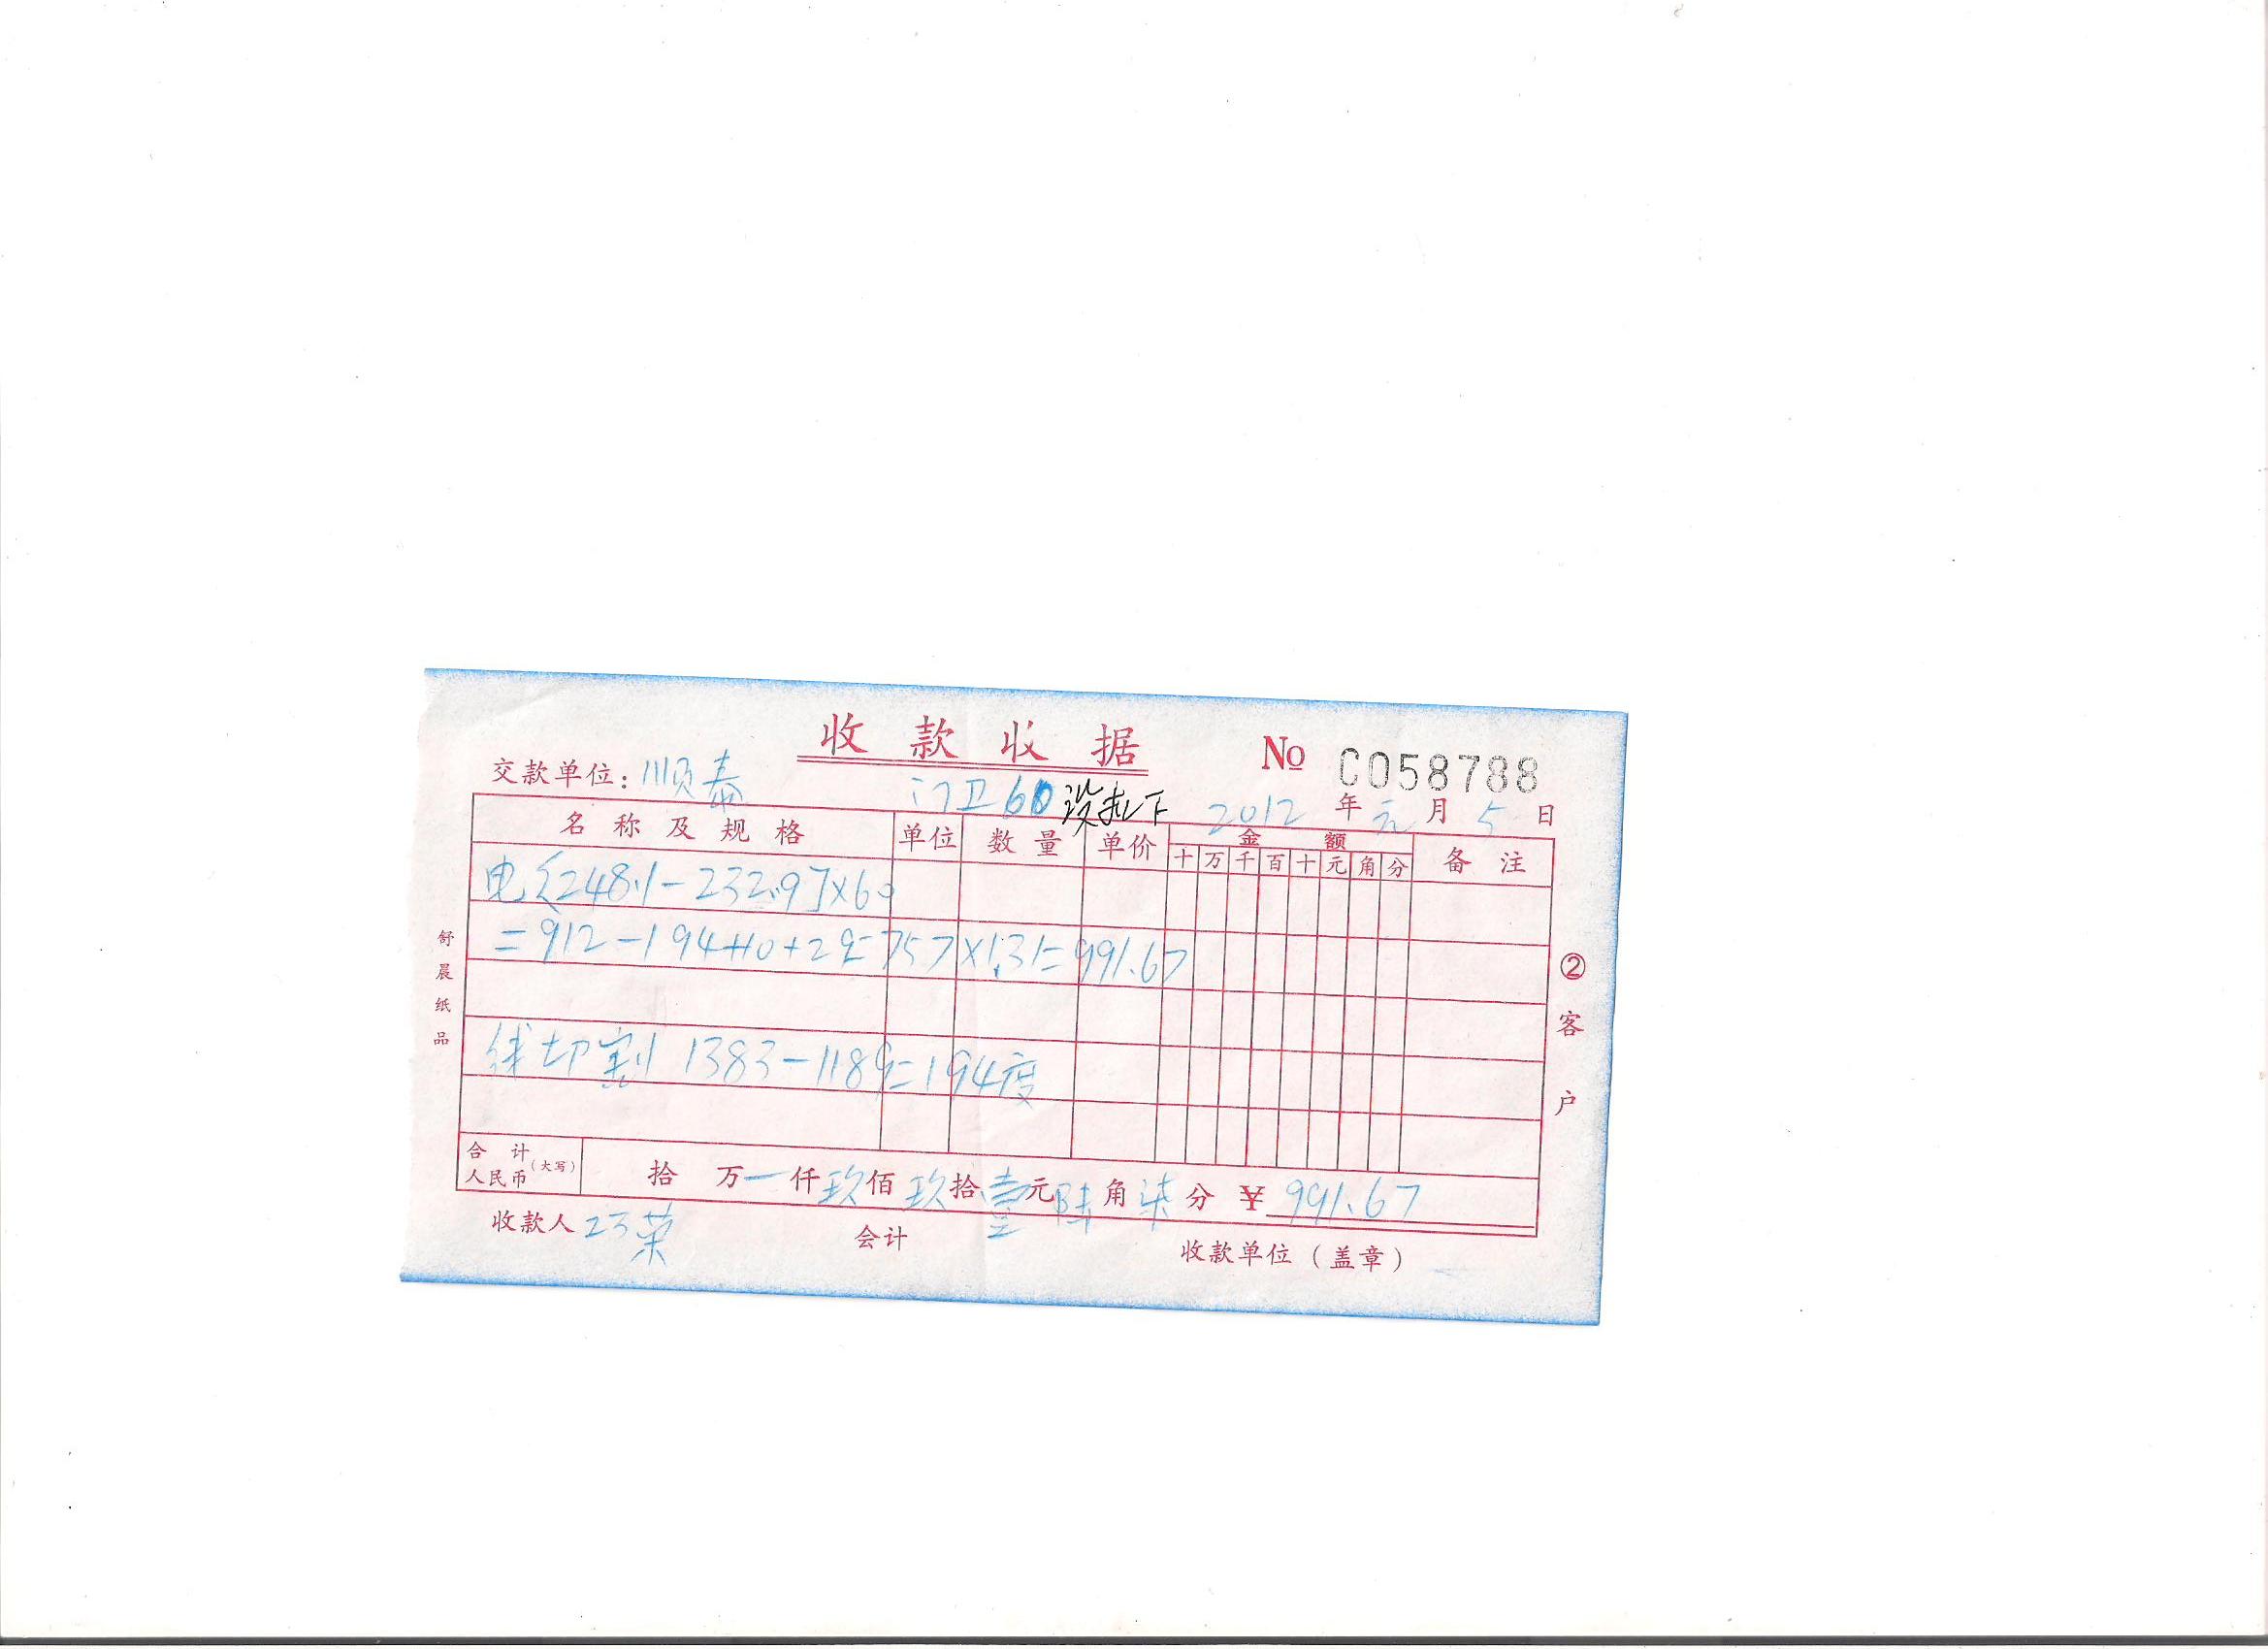 收款收据 No C058788
交款单位: 顺泰 门卫60 没扎下 2012年元月5日
名称及规格 单位 数量 单价 金额 备注
十 万 千 百 十 元 角 分
电 [248.1-232.9]×60
=912-194+10+29=757×1.31=991.67
线切割 1383-1189=194度
合计人民币(大写) 拾 万 一 仟 玖 佰 玖 拾 壹 元 陆 角 柒 分 ¥ 991.67
收款人 会计 收款单位(盖章)
舒晨纸品
②客户